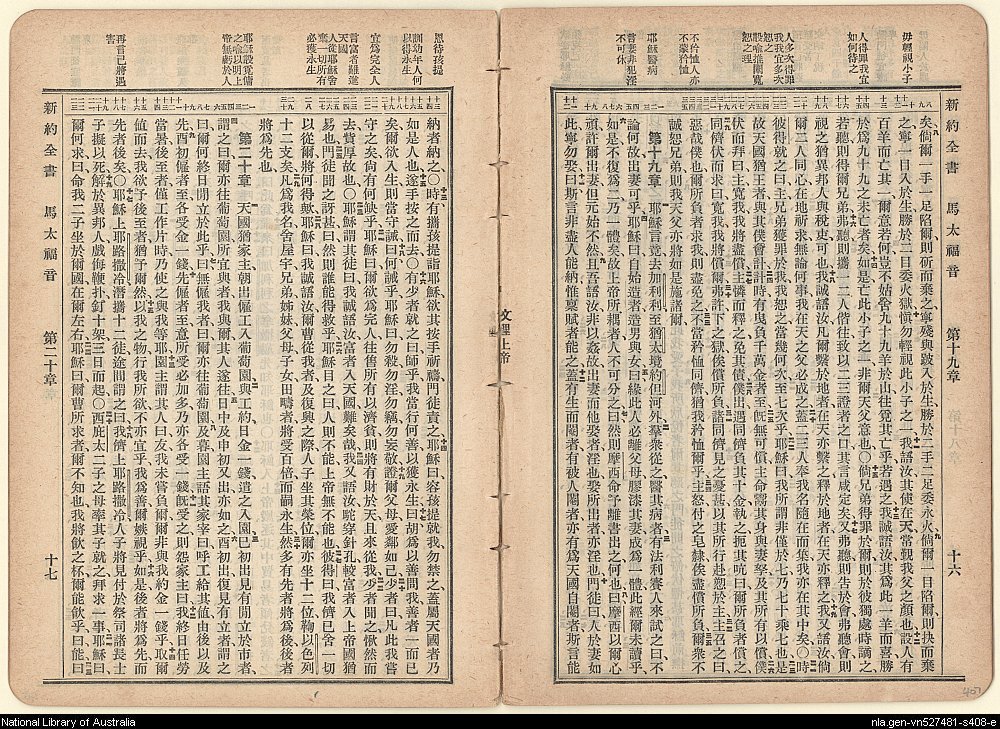 新約全書 馬太福音 第十九章 十六
毋輕視小子
人得罪我宜如何待之
人多次得罪我我宜多次恕之
設喩推闡寬恕之理
不矜恤人亦不蒙矜恤
耶穌醫病
言妻非犯淫不可休
矣、倘爾一手一足陷爾、則斫而棄之、寧殘與跛入於生、勝於二手二足委永火、倘爾一目陷爾、則抉而棄
之、寧一目入於生、勝於二目委火獄、愼勿輕視此小子之一、我語汝、其使在天、常覲我父之顏也、設人有
百羊而亡其一、爾意若何、豈不姑舍九十九羊於山、往覓其亡乎、若遇之、我誠語汝、其爲此一羊而喜、勝
於爲九十九之未亡者矣、如是、亡此小子之一、非爾天父意也、〇倘兄弟得罪於爾、則於彼獨處時諫之、
若聽、則得爾兄弟、弗聽、則攜一二人偕往、致以二三證者之口、其言咸定矣、又弗聽、則告於會、弗聽會、則
視之猶異邦人與稅吏可也、我誠語汝、凡爾繫於地者、在天亦繫之、釋於地者、在天亦釋之、我又語汝、倘
爾二人同心在地祈求、無論何事、我在天之父必成之、蓋二三人奉我名、隨在而集、我亦在其中矣、〇時
彼得就之曰、主、兄弟獲罪於我、我恕之當幾何次、至七次乎、耶穌曰、我不謂爾僅於七、乃七十乘七也、是
故天國猶王者與其僕會計、計時、有曳負千萬金者至、旣無可償、主命鬻其身與妻孥及其所有以償、僕
伏而拜曰、主寬我、我將盡償、主憐而釋之、免其債、僕出、遇同儕負其十金、執之、扼其吭曰、爾所負者償之、
同儕伏而求曰、寬我、我將償爾、弗許、下之獄、俟償所負、諸同儕見之、憂甚、以其所行赴愬於主、主召之曰、
惡哉僕也、爾所負者、求我則盡免之、不當矜恤同儕、猶我矜恤爾乎、主怒、付之皂隸、俟盡償所負、爾衆不
誠恕兄弟、則我天父亦將如是施諸爾、
第十九章 耶穌言竟、去加利利、至猶太境、約但河外、羣衆從之、醫其病者、有法利賽人來試之曰、不
論何故出妻、可乎、耶穌曰、自始造者造男與女、曰、緣此、人必離父母、膠漆其妻、成爲一體、此經爾未讀乎、
如是、不復爲二、乃一體矣、故上帝所耦者、人不可分之、曰、然則摩西命予離書出之何也、曰、摩西以爾心
頑、許爾出妻、但元始不然、且吾語汝、非以姦故出妻而他娶者、淫也、娶所出者、亦淫也、門徒曰、人於妻如
此、寧勿娶、曰、斯言非盡人能納、惟稟賦者能之、蓋有生而閹者、有被人閹者、亦有爲天國自閹者、斯言能
文理上帝
新約全書 馬太福音 第二十章 十七
恩待孩提
訓幼年人何以得永生
宜爲完全人
言富者難進天國
人從耶穌舍棄一切所有必獲永生
耶穌設覓傭之喩以明上帝無虧於人
再言已將遇害
納者納之、〇時有攜孩提詣耶穌、欲其按手祈禱、門徒責之、耶穌曰、容孩提就我、勿禁之、蓋屬天國者乃
如是人也、遂手按之而去、〇有少者就之曰、師乎、我當行何善以獲永生、曰、胡爲以善問我、善者一而已
矣、爾欲入生、則當守誡、曰、何誡乎、耶穌曰、勿殺、勿淫、勿竊、勿妄證、敬爾父母、愛鄰如己、少者曰、凡此我嘗
守之矣、尚有何缺乎、耶穌曰、爾欲爲完人、往售所有以濟貧、則將有財於天、且來從我、少者聞之、愀然而
去、貲厚故也、〇耶穌謂其徒曰、我誠語汝、富者入天國、難矣哉、我又語汝、駝穿針孔、較富者入上帝國猶
易也、門徒聞之、訝甚、曰、然則誰能得救乎、耶穌目之曰、人則不能、上帝無不能也、彼得曰、我儕已舍一切
以從爾、將何得歟、耶穌曰、我誠語汝、爾曹從我者、及復興之際、人子坐其榮位、爾亦坐十二位、鞫以色列
十二支矣、凡爲我名舍屋宇、兄弟、姊妹、父母、子女、田疇者、將受百倍、而嗣永生、然多有先者將爲後、後者
將爲先也、
第二十章 天國猶家主朝出、傭工入葡萄園、與工約日金一錢、遣之入園、已初出、見有閒立於市者、
謂之曰、爾亦往葡萄園、所宜者我與爾、其人遂往、日中及申初又出、亦如之、酉初出、復見有立者、謂之
曰、爾何終日閒立於此乎、曰、無傭我者、曰、爾亦往葡萄園、及暮、園主語其家宰曰、呼工給其值、由後以及
先、酉初傭者至、各受金一錢、先傭者至、意所受必加多、乃亦各受一錢、旣受之、則怨家主曰、我終日任勞
當暑、後至者僅工作片時、乃使之與我等耶、園主謂其一人曰、友、我未嘗負爾、爾非與我約金一錢乎、取爾
值而去、我欲予後至者猶予爾、然以我之物行我所欲、不亦宜乎、我爲善、爾嫉視乎、如是、後者將先、
先者後矣、〇耶穌上耶路撒冷、潛攜十二徒、途間謂之曰、我儕上耶路撒冷、人子將見付於祭司諸長士
子、擬以死、解於異邦人、戲侮鞭扑、釘十架、三日而起、〇西庇太二子之母、率其子就之、拜求一事、耶穌曰、
爾何求、曰、命我二子坐於爾國、在爾左右、耶穌曰、爾曹所求者、爾不知也、我將飲之杯、爾能飲乎、曰、能、曰、
407
National Library of Australia
nla.gen-vn527481-s408-e